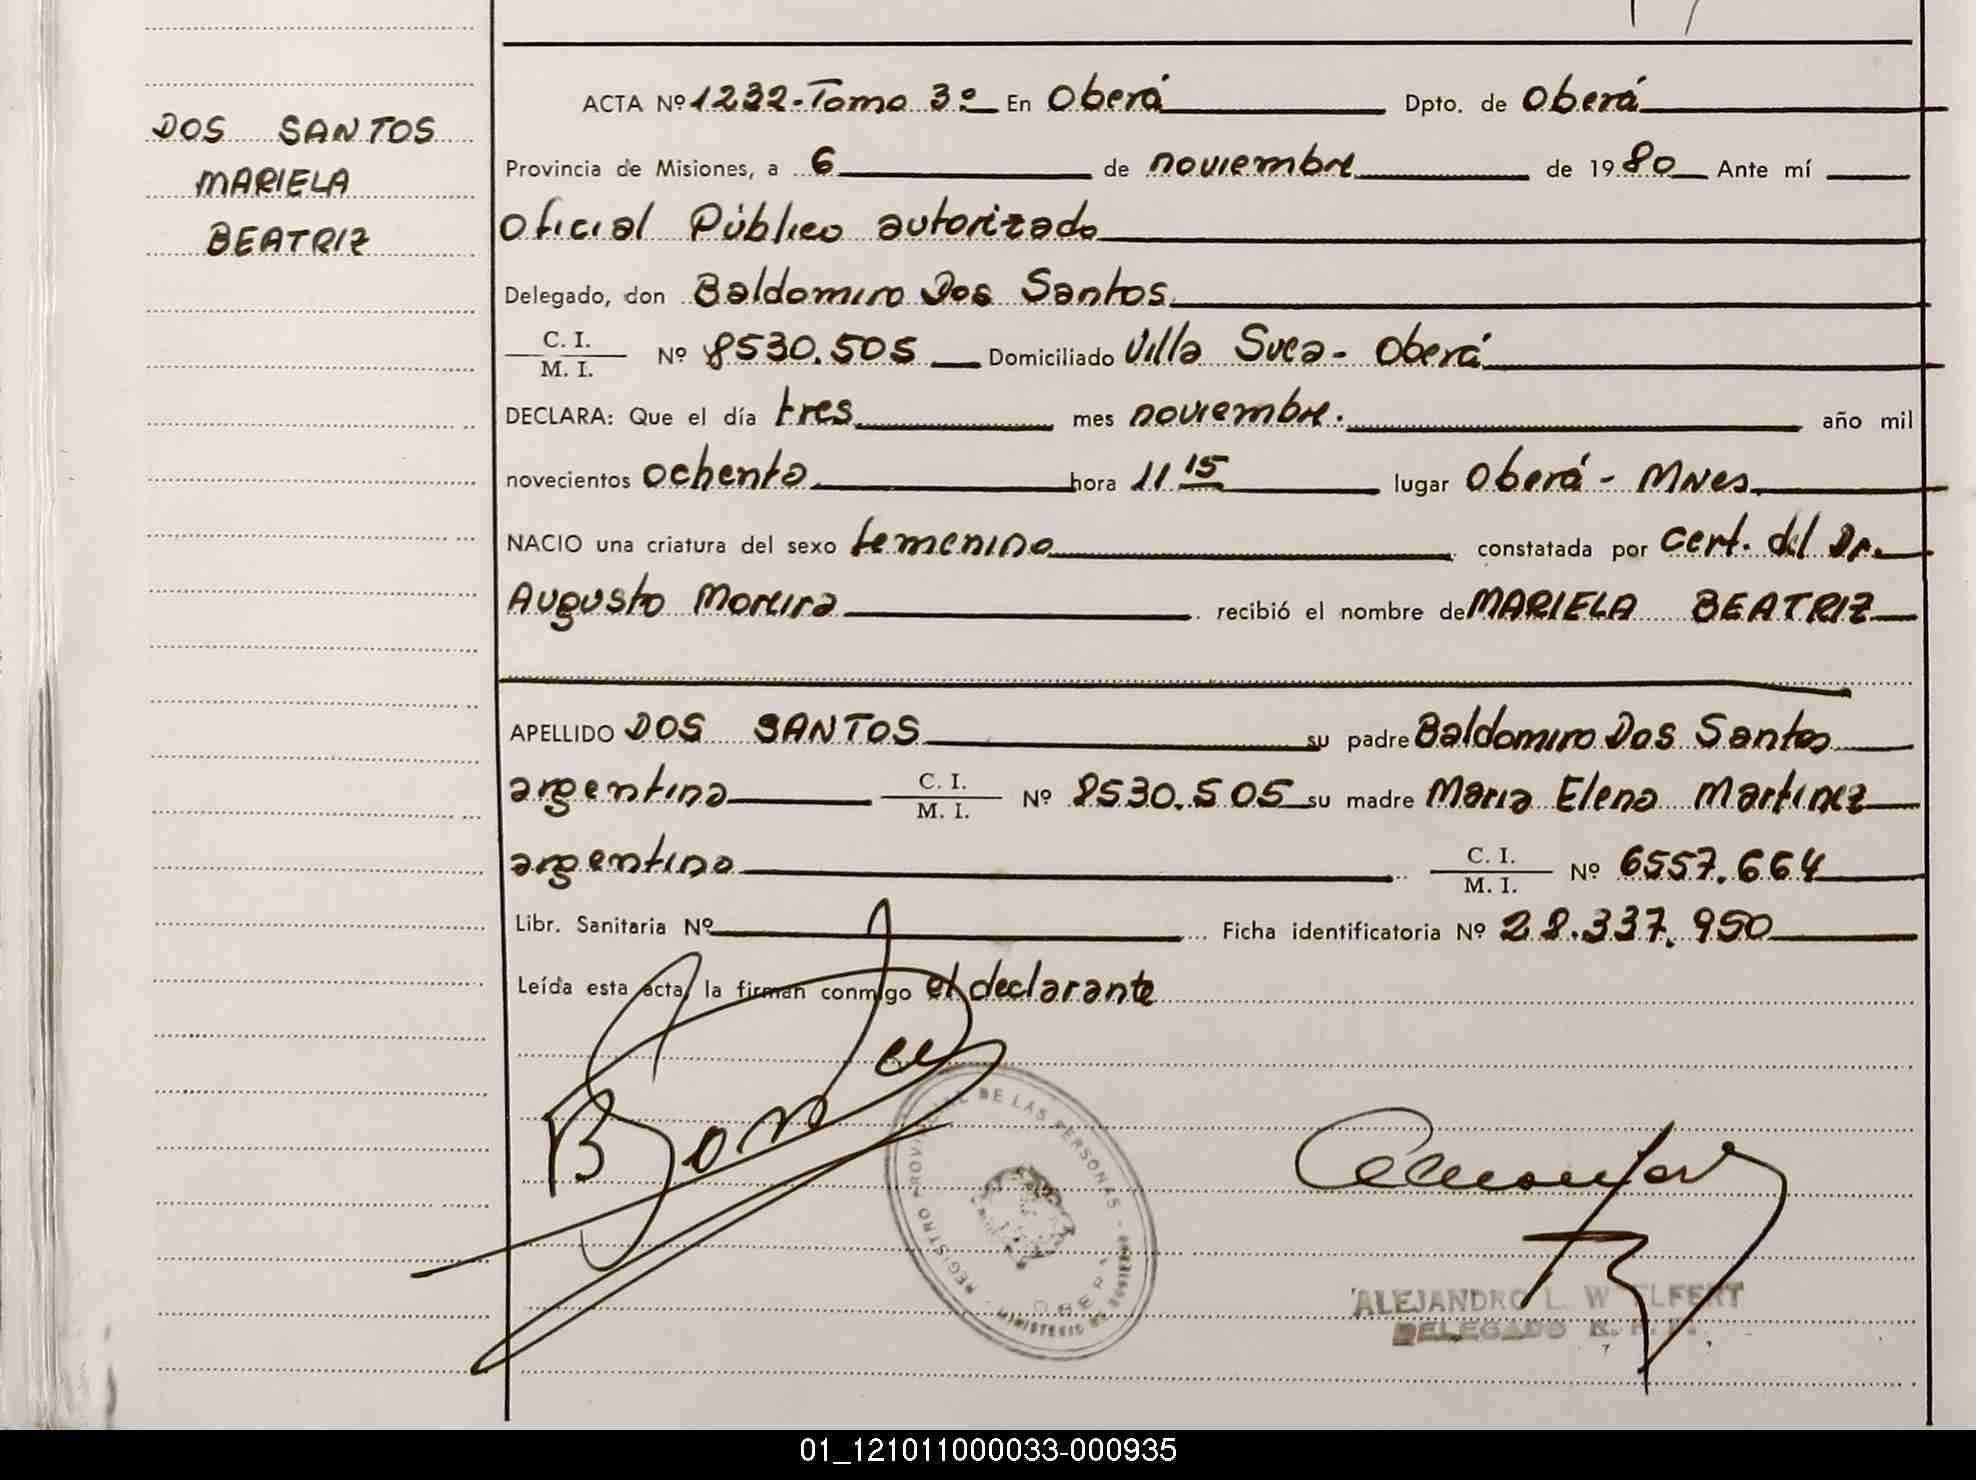 DOS SANTOS
MARIELA
BEATRIZ
ACTA Nº 1232-Tomo 3º En Oberá Dpto. de Oberá
Provincia de Misiones, a 6 de noviembre de 1980 Ante mí
Oficial Público autorizado
Delegado, don Baldomiro Dos Santos
C. I.
M. I. Nº 8530.505 Domiciliado Villa Svea - Oberá
DECLARA: Que el día tres mes noviembre. año mil
novecientos ochenta hora 11 15 lugar Oberá - Mnes.
NACIO una criatura del sexo femenino constatada por cert. del Dr.
Augusto Moreira recibió el nombre de MARIELA BEATRIZ
APELLIDO DOS SANTOS su padre Baldomiro Dos Santos
argentina C. I.
M. I. Nº 8530.505 su madre Maria Elena Martinez
argentina C. I.
M. I. Nº 6557.664
Libr. Sanitaria Nº Ficha identificatoria Nº 28.337.950
Leída esta acta, la firman conmigo el declarante
REGISTRO PROVINCIAL DE LAS PERSONAS - MINISTERIO DE GOBIERNO
OBERA
ALEJANDRO L. W
DELEGADO R. P. P.
01_121011000033-000935